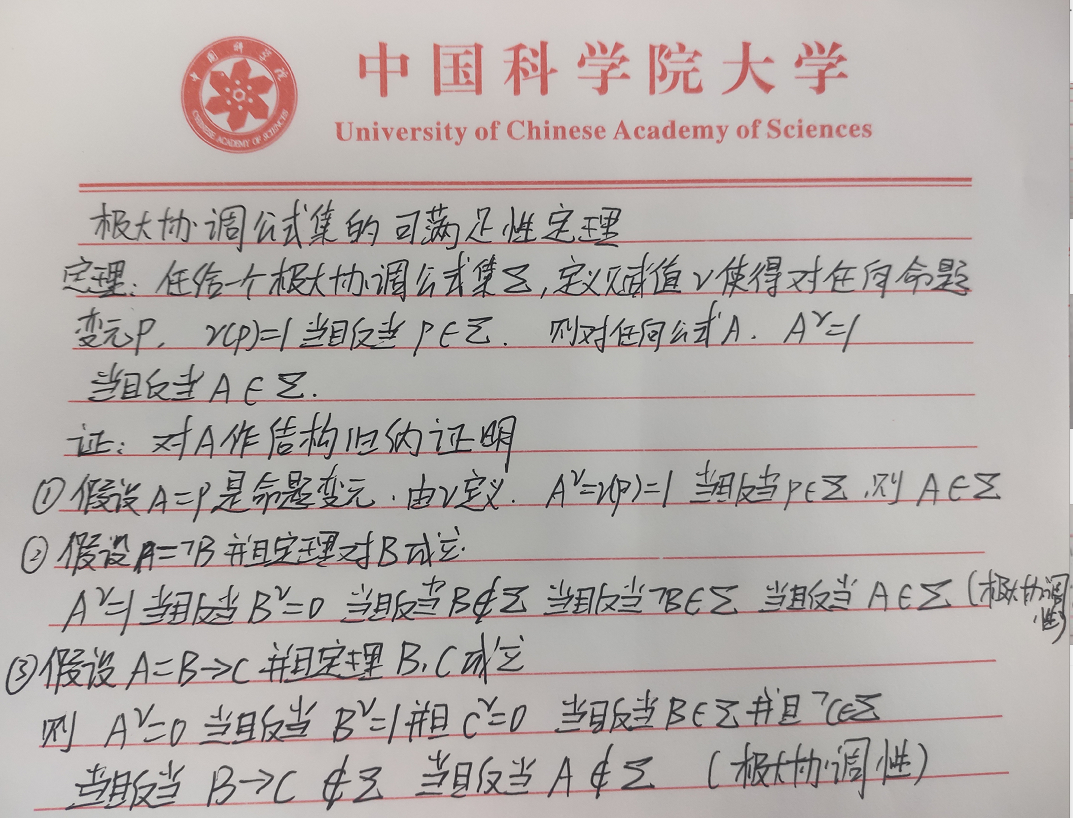 中国科学院大学
University of Chinese Academy of Sciences
中国科学院
CHINESE ACADEMY OF SCIENCES
极大协调公式集的可满足性定理
定理：任给一个极大协调公式集Σ,定义赋值ν使得对任何命题
变元p, ν(p)=1 当且仅当 p∈Σ. 则对任何公式A. A^ν=1
当且仅当 A∈Σ.
证：对A作结构归纳证明
① 假设A=p是命题变元.由ν定义. A^ν=ν(p)=1 当且仅当p∈Σ,则 A∈Σ
② 假设A=¬B 并且定理对B成立.
A^ν=1当且仅当B^ν=0 当且仅当B∉Σ 当且仅当¬B∈Σ 当且仅当 A∈Σ (极大协调性)
③ 假设 A=B→C 并且定理 B,C 成立
则 A^ν=0 当且仅当 B^ν=1并且 C^ν=0 当且仅当B∈Σ并且¬C∈Σ
当且仅当 B→C ∉Σ 当且仅当 A∉Σ (极大协调性)